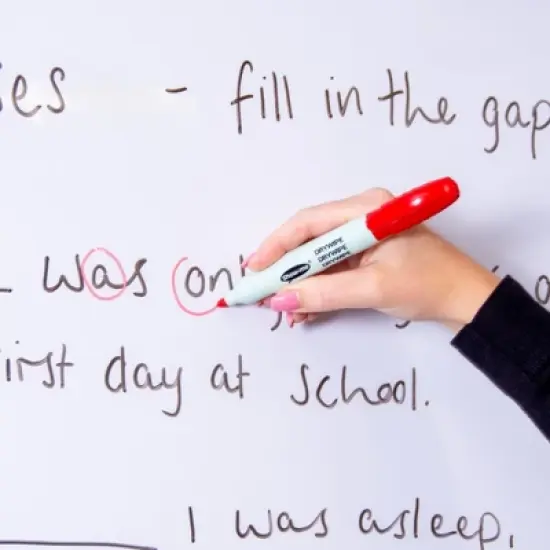 - fill in the gap
was on
first day at school.
I was asleep,
DRYWIPE
DRYWIPE
DRYWIPE